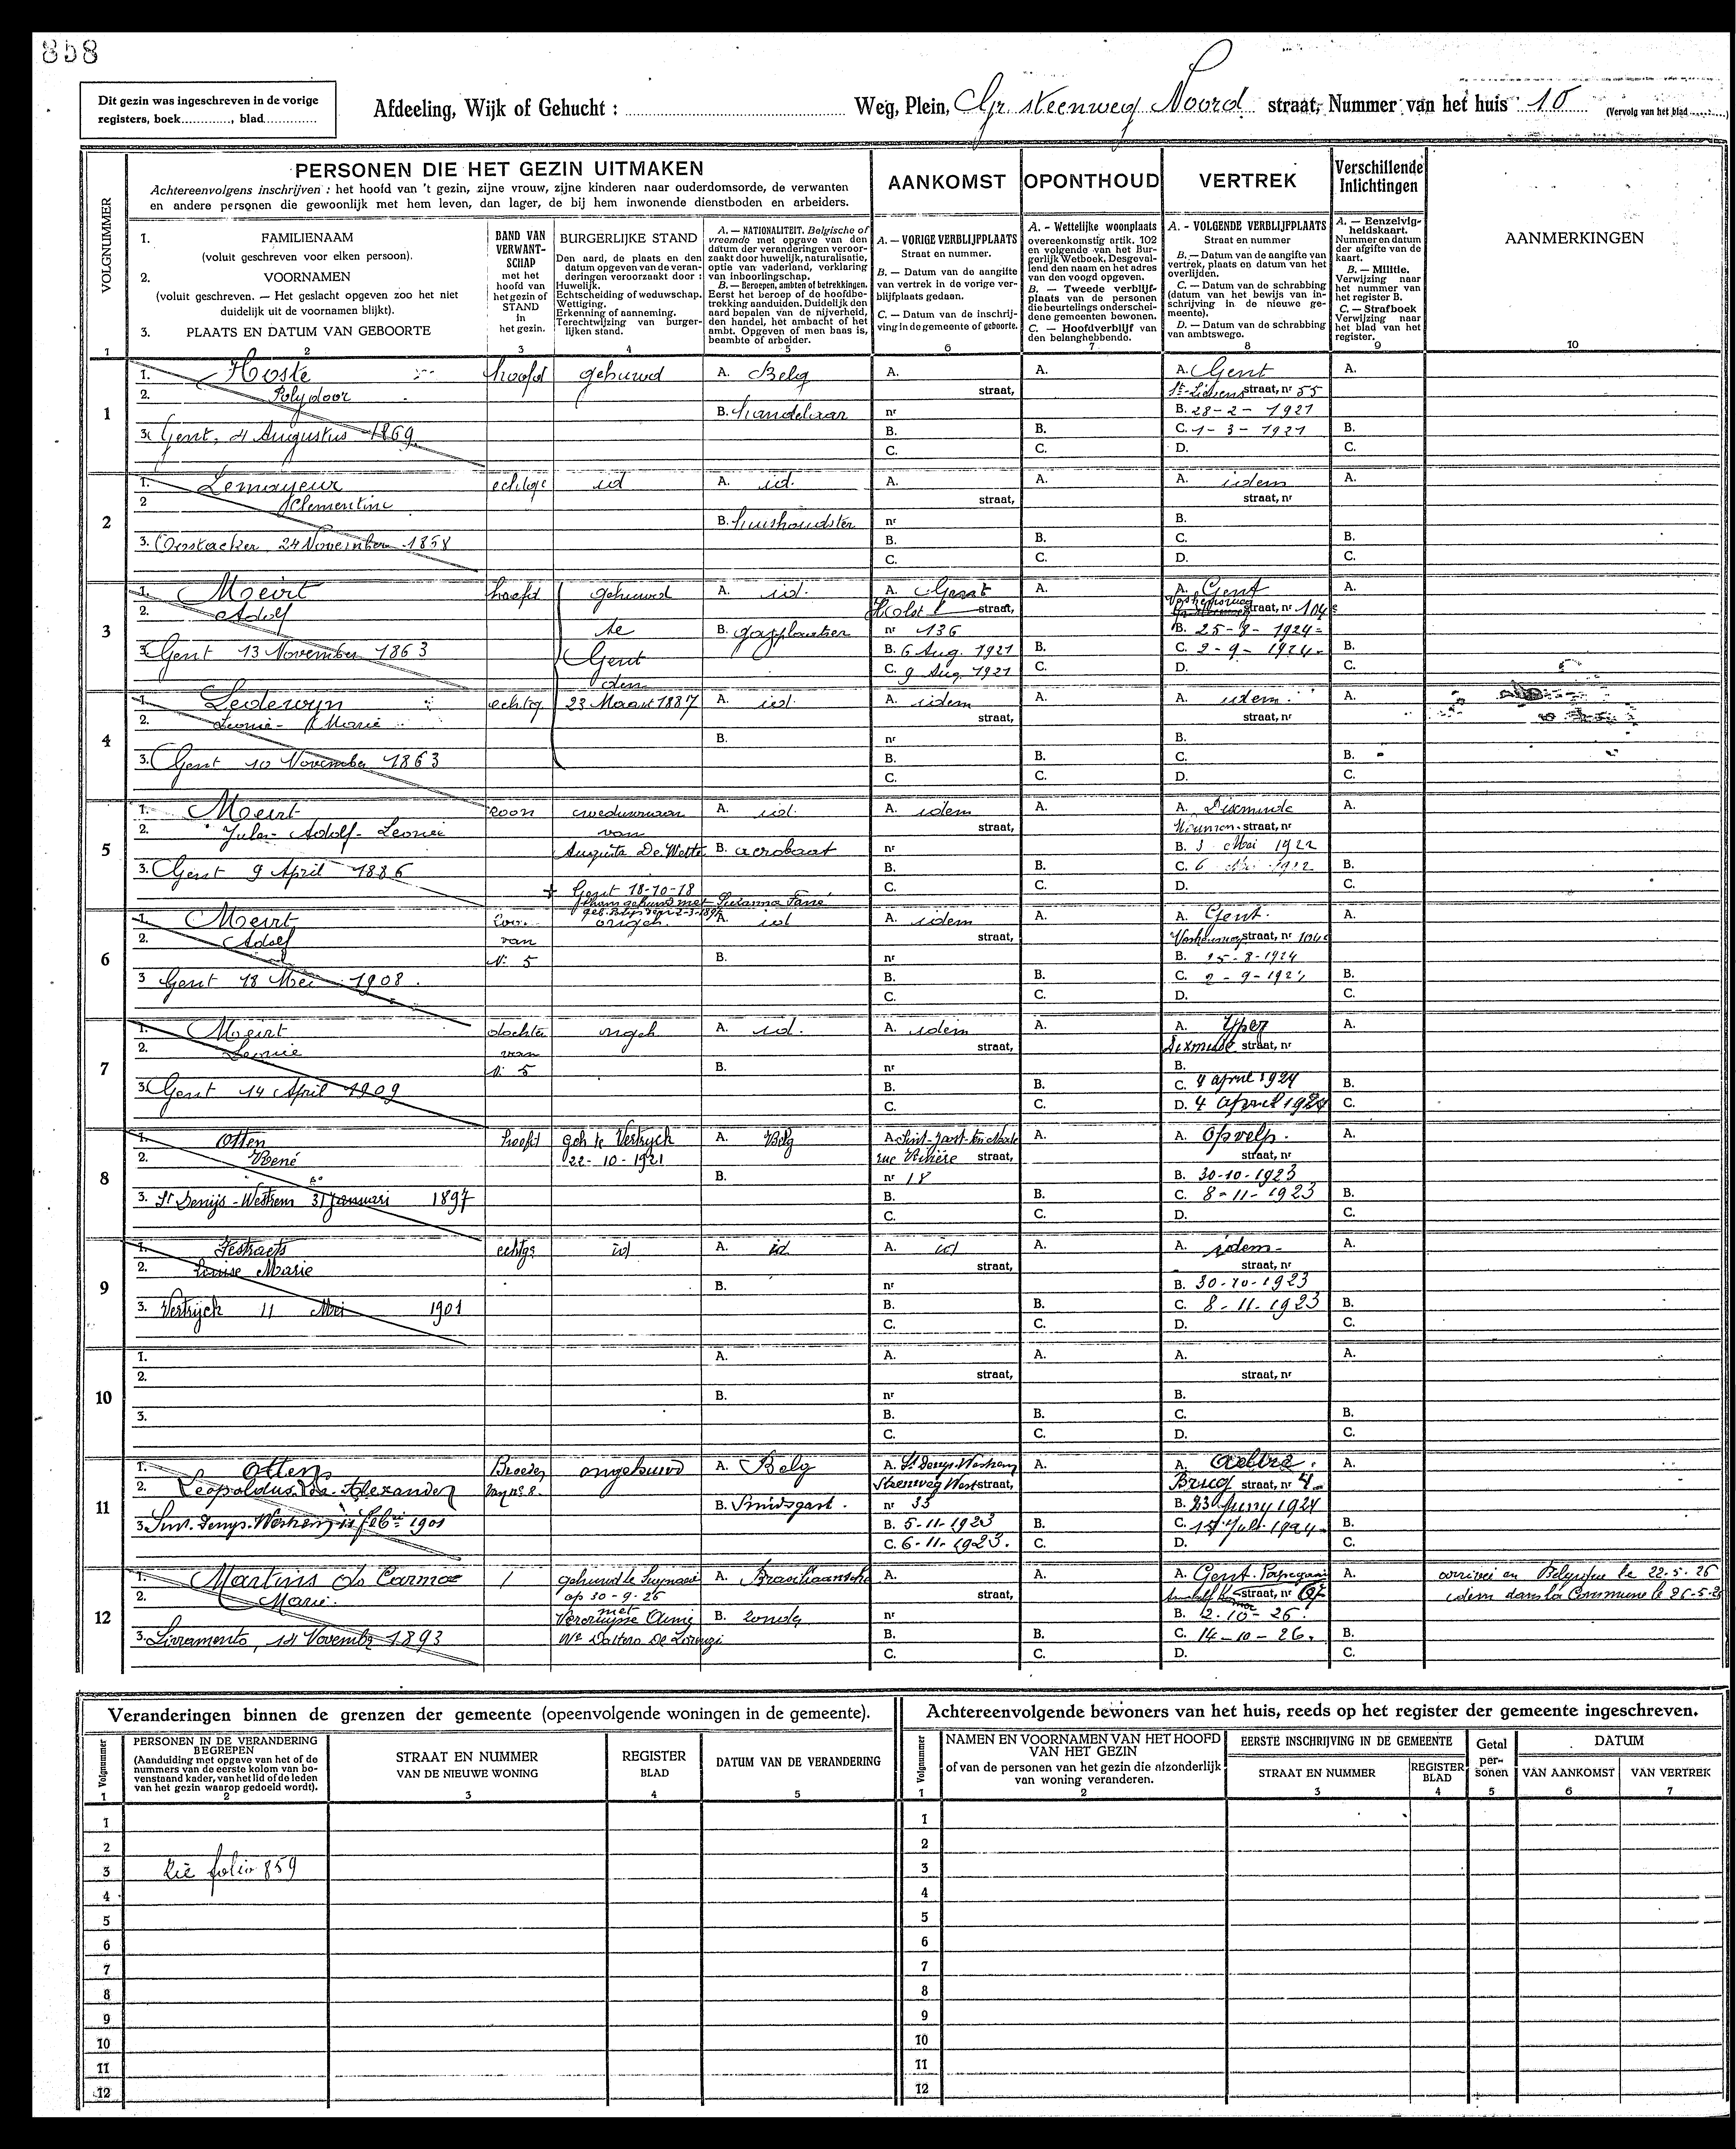 858
Dit gezin was ingeschreven in de vorige
registers, boek............, blad.............
Afdeeling, Wijk of Gehucht :
Weg, Plein, Gr steenweg Noord straat, Nummer van het huis 10
(Vervolg van het blad ........)
VOLGNUMMER
PERSONEN DIE HET GEZIN UITMAKEN
Achtereenvolgens inschrijven : het hoofd van 't gezin, zijne vrouw, zijne kinderen naar ouderdomsorde, de verwanten
en andere personen die gewoonlijk met hem leven, dan lager, de bij hem inwonende dienstboden en arbeiders.
AANKOMST
OPONTHOUD
VERTREK
Verschillende
Inlichtingen
AANMERKINGEN
1. FAMILIENAAM
(voluit geschreven voor elken persoon).
2. VOORNAMEN
(voluit geschreven. — Het geslacht opgeven zoo het niet
duidelijk uit de voornamen blijkt).
3. PLAATS EN DATUM VAN GEBOORTE
BAND VAN
VERWANT-
SCHAP
met het
hoofd van
het gezin of
STAND
in
het gezin.
BURGERLIJKE STAND
Den aard, de plaats en den
datum opgeven van de veran-
deringen veroorzaakt door :
Huwelijk.
Echtscheiding of weduwschap.
Wettiging.
Erkenning of aanneming.
Terechtwijzing van burger-
lijken stand.
A. — NATIONALITEIT. Belgische of
vreemde met opgave van den
datum der veranderingen veroor-
zaakt door huwelijk, naturalisatie,
optie van vaderland, verklaring
van inboorlingschap.
B. — Beroepen, ambten of betrekkingen.
Eerst het beroep of de hoofdbe-
trekking aanduiden. Duidelijk den
aard bepalen van de nijverheid,
den handel, het ambacht of het
ambt. Opgeven of men baas is,
beambte of arbeider.
A. — VORIGE VERBLIJFPLAATS
Straat en nummer.
B. — Datum van de aangifte
van vertrek in de vorige ver-
blijfplaats gedaan.
C. — Datum van de inschrij-
ving in de gemeente of geboorte.
A. - Wettelijke woonplaats
overeenkomstig artik. 102
en volgende van het Bur-
gerlijk Wetboek. Desgeval-
lend den naam en het adres
van den voogd opgeven.
B. — Tweede verblijf-
plaats van de personen
die beurtelings onderschei-
dene gemeenten bewonen.
C. — Hoofdverblijf van
den belanghebbende.
A. - VOLGENDE VERBLIJFPLAATS
Straat en nummer
B. — Datum van de aangifte van
vertrek, plaats en datum van het
overlijden.
C. — Datum van de schrabbing
(datum van het bewijs van in-
schrijving in de nieuwe ge-
meente).
D. — Datum van de schrabbing
van ambtswege.
A. — Eenzelvig-
heidskaart.
Nummer en datum
der afgifte van de
kaart.
B. — Militie.
Verwijzing naar
het nummer van
het register B.
C. — Strafboek
Verwijzing naar
het blad van het
register.
1 2 3 4 5 6 7 8 9 10
1
1. Hoste hoofd gehuwd A. Belg A. A. A. Gent A.
2. Polydoor straat, straat, nr 55
B. handelaar nr B. 28-2-1921
3. Gent, 4 Augustus 1869 B. B. C. 1-3-1921 B.
C. C. D. C.
2
1. Lemayeur echtge id A. id. A. A. A. idem A.
2 Clementine straat, straat, nr
B. huishoudster nr B.
3. Oostacker 24 November 1858 B. B. C. B.
C. C. D. C.
3
1. Meirt hoofd gehuwd A. id. A. Gent A. A. Gent A.
2. Adolf te Holst straat, straat, nr 104
B. nr 136 B. 25-8-1924
3. Gent 13 November 1863 Gent B. 6 Aug. 1921 B. C. 2-9-1924 B.
den C. 9 Aug 1921 C. D. C.
4
1. echtg 23 Maart 1887 A. id. A. idem A. A. idem. A.
2. Leonie - Marie straat, straat, nr
B. nr B.
3. Gent 10 November 1863 B. B. C. B.
C. C. D. C.
5
1. Meirt zoon weduwnaar A. id. A. idem A. A. Dixmude A.
2. Jules - Adolf - Leonie van straat, straat, nr
Augusta De Wette B. acrobaat nr B. 3 Mai 1922
3. Gent 9 April 1886 B. B. C. 6 1922 B.
+ Gent 18-10-18 C. C. D. C.
6
1. Meirt ongeh. A. id A. idem A. A. Gent. A.
2. Adolf van straat, straat, nr 104
N. 5 B. nr B. 25-8-1924
3 Gent 18 Mei 1908. B. B. C. 2-9-1924 B.
C. C. D. C.
7
1. Meirt dochter ongeh A. id. A. idem A. A. Yper A.
2. Leonie van straat, Dixmude straat, nr
N. 5 B. nr B.
3. Gent 14 April 1909 B. B. C. 4 april 1924 B.
C. C. D. 4 april 1924 C.
8
1. Otten hoofd geh te Vertryck A. Belg A. Sint-Joost-ten-Noode A. A. Opvelp. A.
2. René 22-10-1921 straat, straat, nr
B. nr 18 B. 30-10-1923
3. St Denijs-Westrem 31 januari 1897 B. B. C. 8-11-1923 B.
C. C. D. C.
9
1. echtge id A. id A. id A. A. idem - A.
2. Louise Marie straat, straat, nr
B. nr B. 30-10-1923
3. Vertryck 11 Mei 1901 B. B. C. 8-11-1923 B.
C. C. D. C.
10
1. A. A. A. A. A.
2. straat, straat, nr
B. nr B.
3. B. B. C. B.
C. C. D. C.
11
1. Otten Broeder ongehuwd A. Belg A. St Denys-Westrem A. A. Aeltre. A.
2. Leopoldus Alexander van nr 8. Steenweg West straat, Brug straat, nr 4.
B. Smidsgast. nr 33 B. 23 Juny 1924
3. Sint. Denys. Westrem 1901 B. 5-11-1923 B. C. Juli 1924 B.
C. 6-11-1923. C. D. C.
12
1. Martins do Carmo / A. Braziliaansche A. A. A. Gent. A. arrivée en Belgique le 22-5-26
2. Marie. op 30-9-26 straat, straat, nr idem dans la Commune le 26-5-26
met
Vercruysse Aimé B. zonder nr B. 12-10-26.
3. Livramento, 14 Novembr 1893 We De Lorenzi B. B. C. 14-10-26. B.
C. C. D. C.
Veranderingen binnen de grenzen der gemeente (opeenvolgende woningen in de gemeente).
Volgnummer
PERSONEN IN DE VERANDERING
BEGREPEN
(Aanduiding met opgave van het of de
nummers van de eerste kolom van bo-
venstaand kader, van het lid of de leden
van het gezin waarop gedoeld wordt).
STRAAT EN NUMMER
VAN DE NIEUWE WONING
REGISTER
BLAD
DATUM VAN DE VERANDERING
1 2 3 4 5
1
2
3 Zie folio 859
4
5
6
7
8
9
10
11
12
Achtereenvolgende bewoners van het huis, reeds op het register der gemeente ingeschreven.
Volgnummer
NAMEN EN VOORNAMEN VAN HET HOOFD
VAN HET GEZIN
of van de personen van het gezin die afzonderlijk
van woning veranderen.
EERSTE INSCHRIJVING IN DE GEMEENTE
STRAAT EN NUMMER
REGISTER
BLAD
Getal
per-
sonen
DATUM
VAN AANKOMST
VAN VERTREK
1 2 3 4 5 6 7
1
2
3
4
5
6
7
8
9
10
11
12